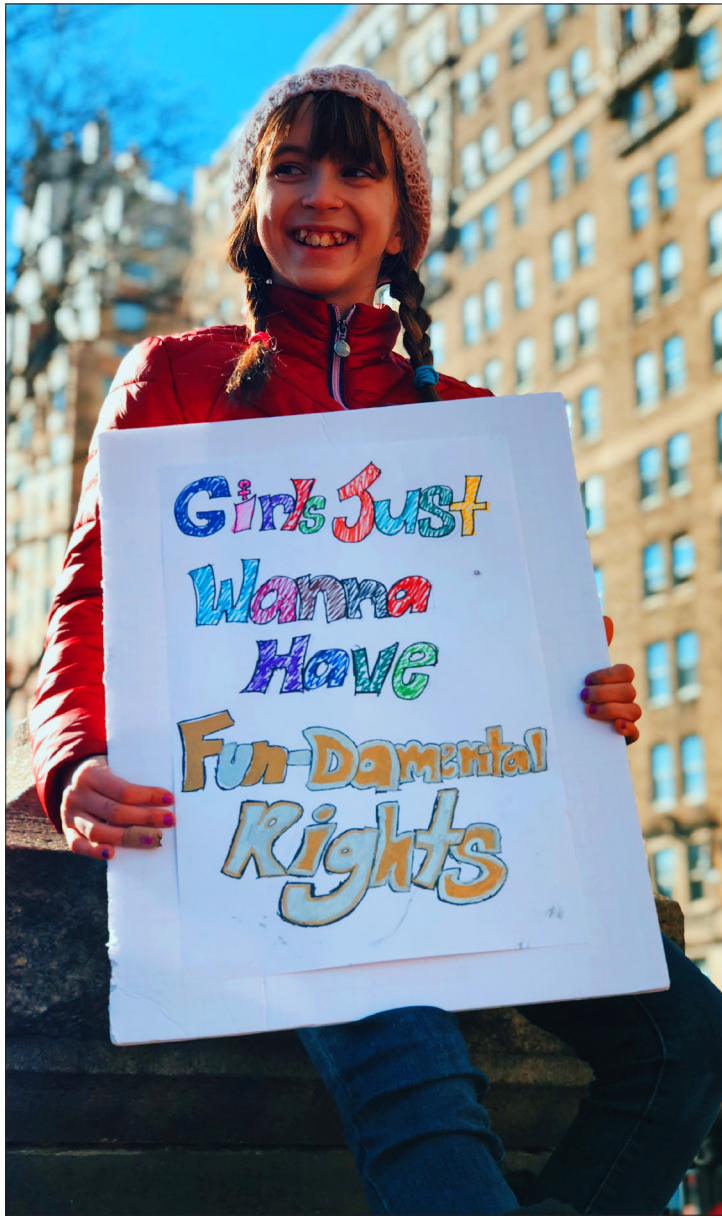 Girls Just
Wanna
Have
Fun-Damental
Rights